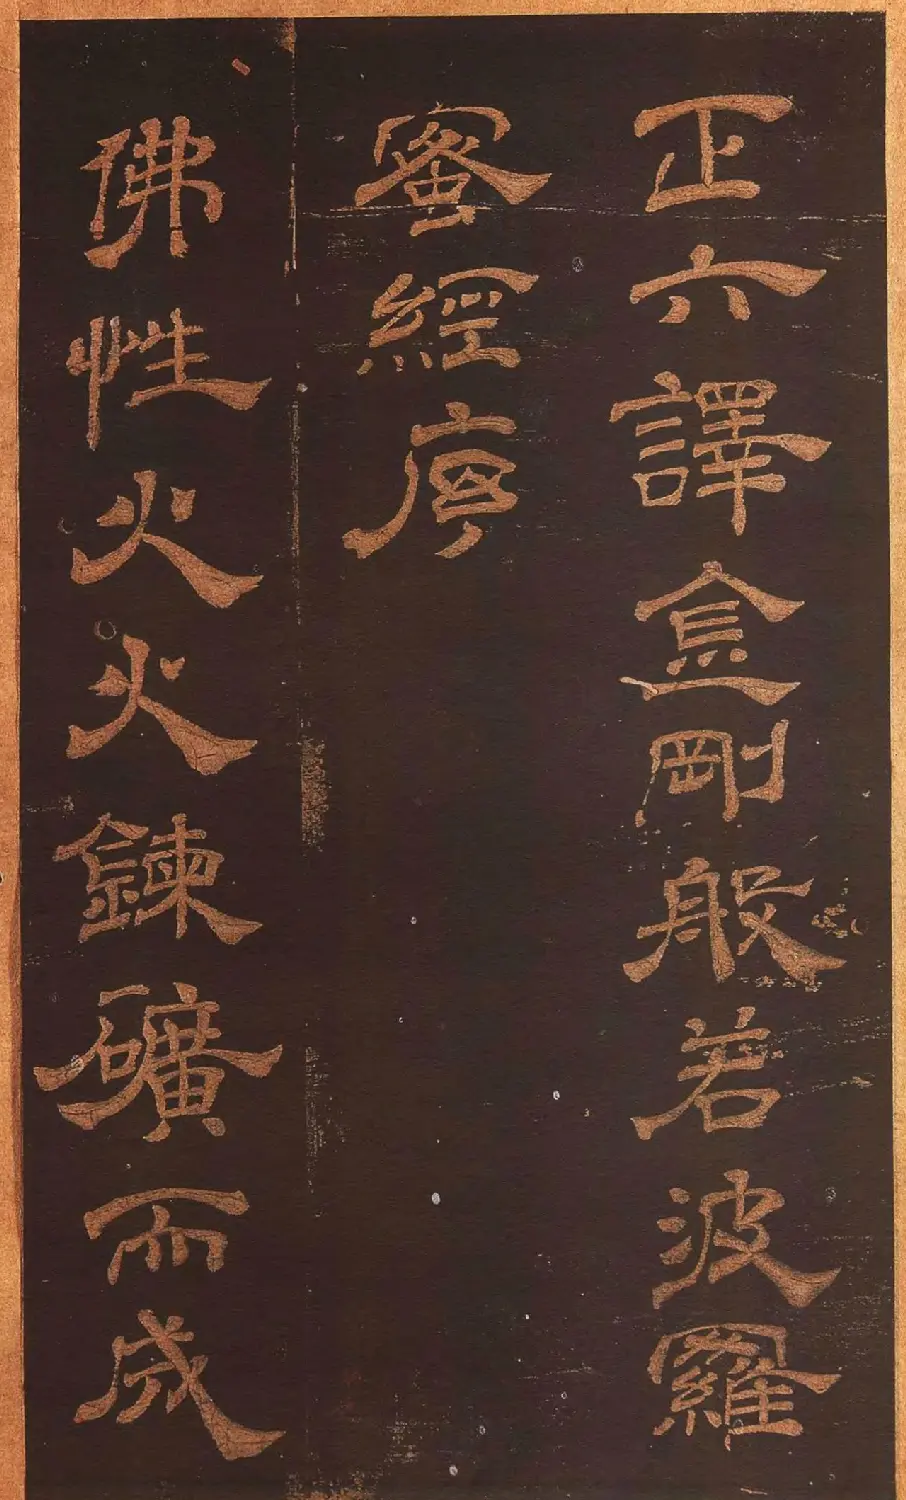 正六譯金剛般若波羅
蜜經序
佛性火火鍊礦而成